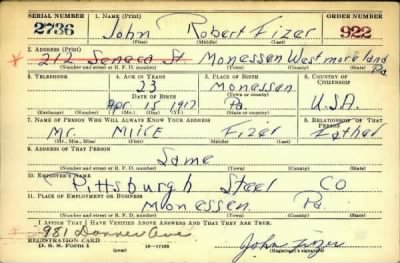 SERIAL NUMBER 1. NAME (Print) ORDER NUMBER
2736 John Robert Fizer 922
(First) (Middle) (Last)
2. ADDRESS (Print)
212 Seneca St. Monessen Westmoreland Pa.
(Number and street or R. F. D. number) (Town) (County) (State)
3. TELEPHONE 4. AGE IN YEARS 5. PLACE OF BIRTH 6. COUNTRY OF CITIZENSHIP
23 Monessen
DATE OF BIRTH (Town or county)
Apr 15 1917 Pa. U.S.A.
(Exchange) (Number) (Mo.) (Day) (Yr.) (State or country)
7. NAME OF PERSON WHO WILL ALWAYS KNOW YOUR ADDRESS 8. RELATIONSHIP OF THAT PERSON
Mr. Fizer Father
(Mr., Mrs., Miss) (First) (Middle) (Last)
9. ADDRESS OF THAT PERSON
Same
(Number and street or R. F. D. number) (Town) (County) (State)
10. EMPLOYER'S NAME
Pittsburgh Steel Co
11. PLACE OF EMPLOYMENT OR BUSINESS
Monessen Pa.
(Number and street or R. F. D. number) (Town) (County) (State)
I AFFIRM THAT I HAVE VERIFIED ABOVE ANSWERS AND THAT THEY ARE TRUE.
981 Donner Ave
REGISTRATION CARD
D. S. S. Form 1 John Fizer